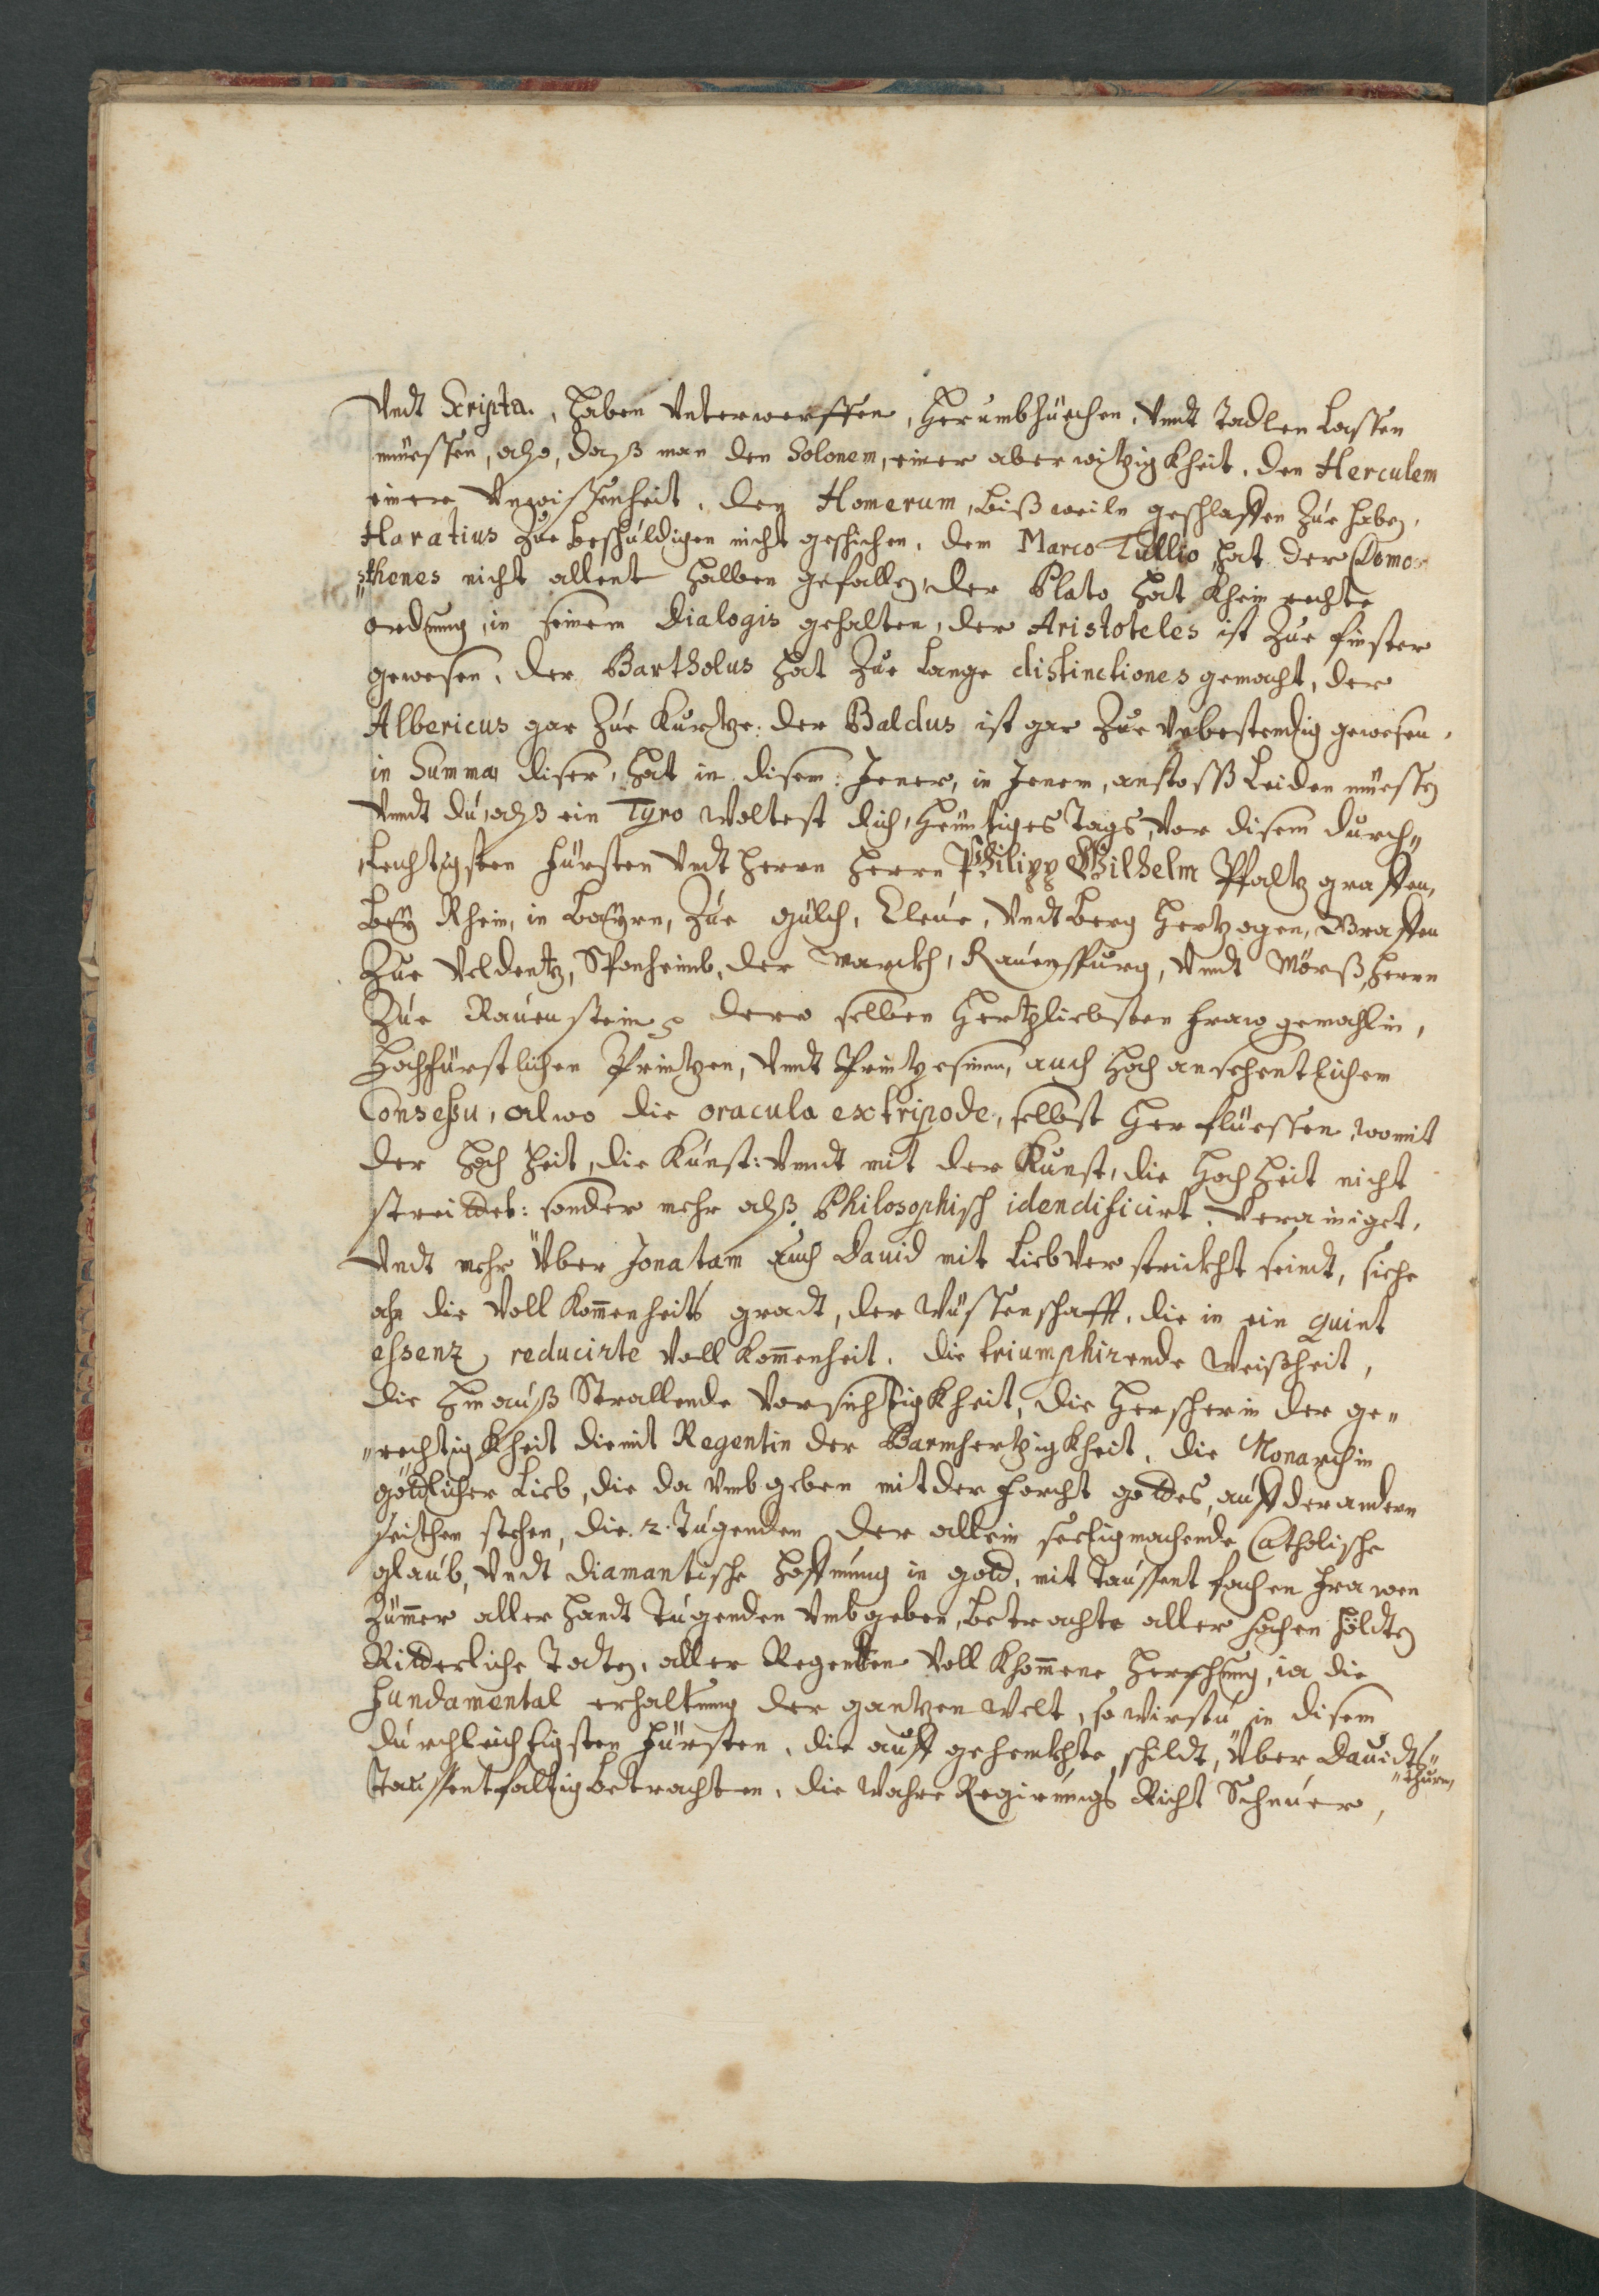 Vndt Scripta., haben Vnterwerffen, Herumbzüechen, Vnndt Tadlen Lassen
müessen, also, daß man den Solonem, einer aberwitzigkheit, den Herculem
einer Vnwissenheit, den Homerum, bißweiln geschlaffen Zue haben,
Haratius Zue beschuldigen nicht geschichen, dem Marco Tullio hat der Demo⸗
"sthenes nicht allent halben gefallen, der Plato hat khein rechte
ordnung, in seinem Dialogis gehalten, der Aristoteles ist Zue finster
gewesen, der Bartholus hat Zue Lange distinctiones gemacht, der
Albericus gar Zue Kurtze: der Baldus ist gar Zue Vnbestendig gewesen,
in Summa, diser, hat in disem: Jener, in Jenem, anstoss Leiden müessen
Vnndt du, alß ein Tyro woltest dich, heüntiges Tags, Vor disem durch"
Leichtigsten Fürsten Vndt Herrn Herrn Philipp Wilhelm Pfaltzgraffen,
bey Rhein, in Bayrn, Zue Gülch, Cleue, Vndt Berg Hertzogen, Graffen
Zue Veldentz, Sponheimb, der Marckh, Rauenspurg, Vnndt Mörß, Herrn
Zue Rauenstein, dero selben Hertzliebsten fraw gemahlin,
Hochfürstlichen Printzen, Vnndt Printzesinen, auch hoch ansehentlichem
Consessu, alwo die oracula ex tripode, selbst her flüessen, womit
der Hochheit, die Kunst: Vnndt mit der Kunst, die Hochheit nicht
streiddet: sonder mehr alß Philosophisch idendificirt, Verainiget,
Vndt mehr Vber Jonatam Auch Dauid mit Lieb Verstrickht seindt, siche
ahn die Vollkomenheits gradt, der Wüssenschafft, die in ein Quint
essenz, reducirte Vollkomenheit, die triumphirende Weißheit,
die hinauß Strallende Vorsichtigkheit, die Herscherin der ge"
"rechtigkheit die mit Regentin der Barmhertzigkheit, die Monarchin
göddlicher Lieb, die da Vmbgeben mit der forcht goddes, auff der andern
seithen stehen, die .2. Tugenden der allein seeligmachende Catholische
glaub, Vndt diamantische Hoffnung in gold, mit Taussent fachen frawen
Zümer aller handt Tugenden Vmbgeben, betrachte aller hochen höldten
Ridderliche Todten, aller Regenten Vollkhomene Herschung, ia die
Fundamental erhaltung der gantzen Welt, so wirstu in disem
durchleichtigsten Fürsten, die auff gehenckhte schildt, Über Dauidts"
"thurn,
Taussentfaltig betrachten, die wahre Regirungs Richt Schnuer,